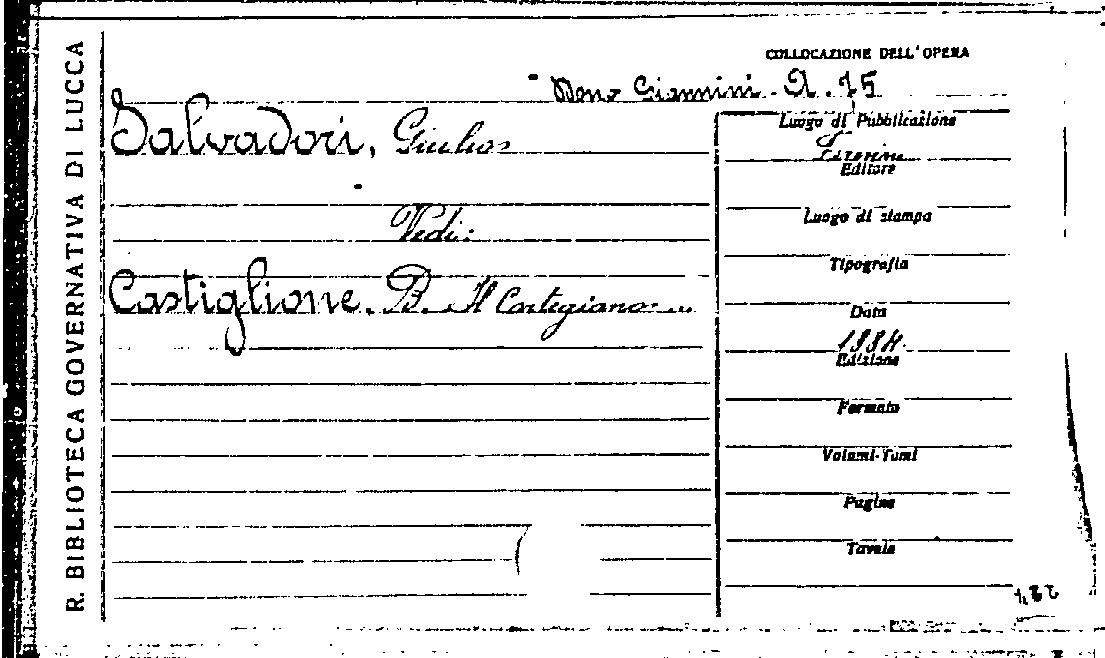 R. BIBLIOTECA GOVERNATIVA DI LUCCA
COLLOCAZIONE DELL'OPERA
Dono Giannini. A. 15
Salvadori, Giulio
Vedi:
Castiglione. B. Il Cortegiano
Luogo di Pubblicazione
Editore
Luogo di stampa
Tipografia
Data
1884
Edizione
Formato
Volumi-Tomi
Pagine
Tavole